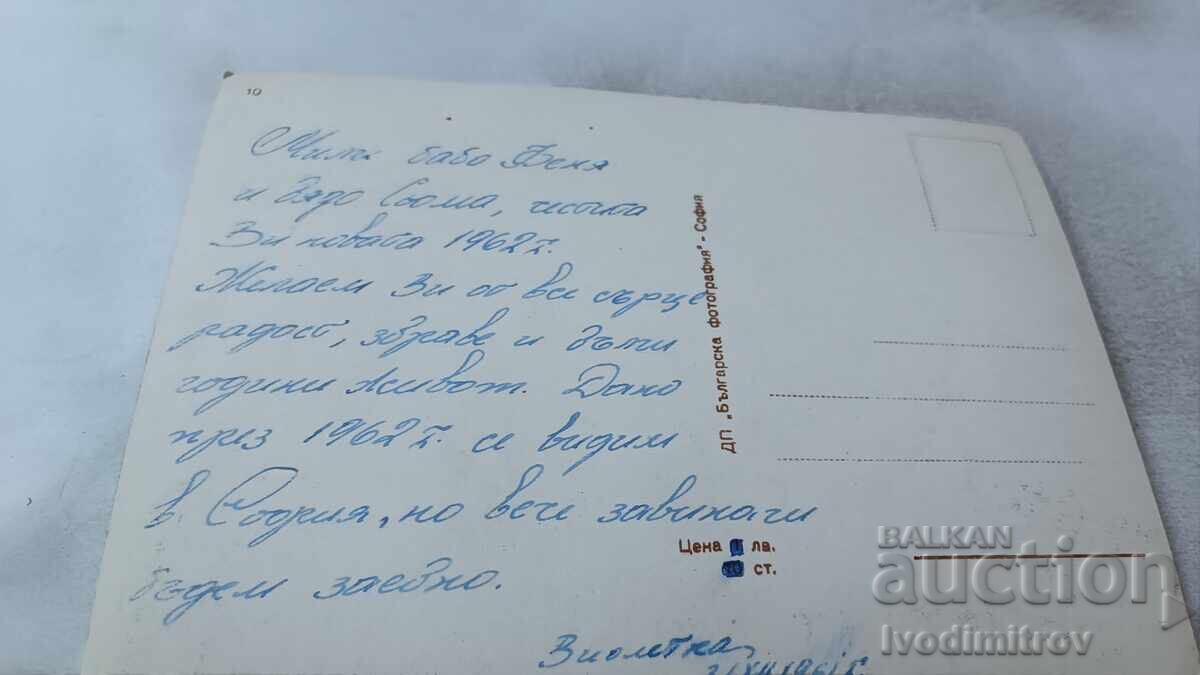 10
Мили бабо Феня
и дядо Сьома, честита
Ви новата 1962 г.
Желаем Ви от все сърце
радост, здраве и дълги
години живот. Дано
през 1962 г. се видим
в София, но вече завинаги
бъдем заедно.
Виолетка
31 XII 1961 г.
ДП „Българска фотография" - София
Цена лв.
ст.
BALKAN
auction
Ivodimitrov